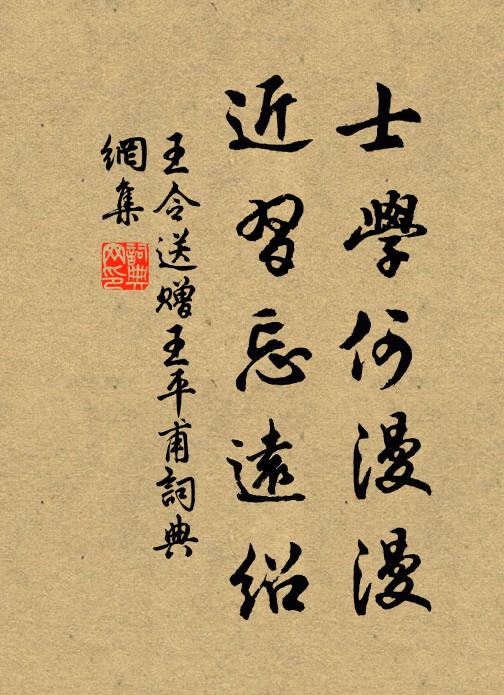 士學何漫漫
近習忘遠紹
王令送贈王平甫詞典
網集
詞典網印